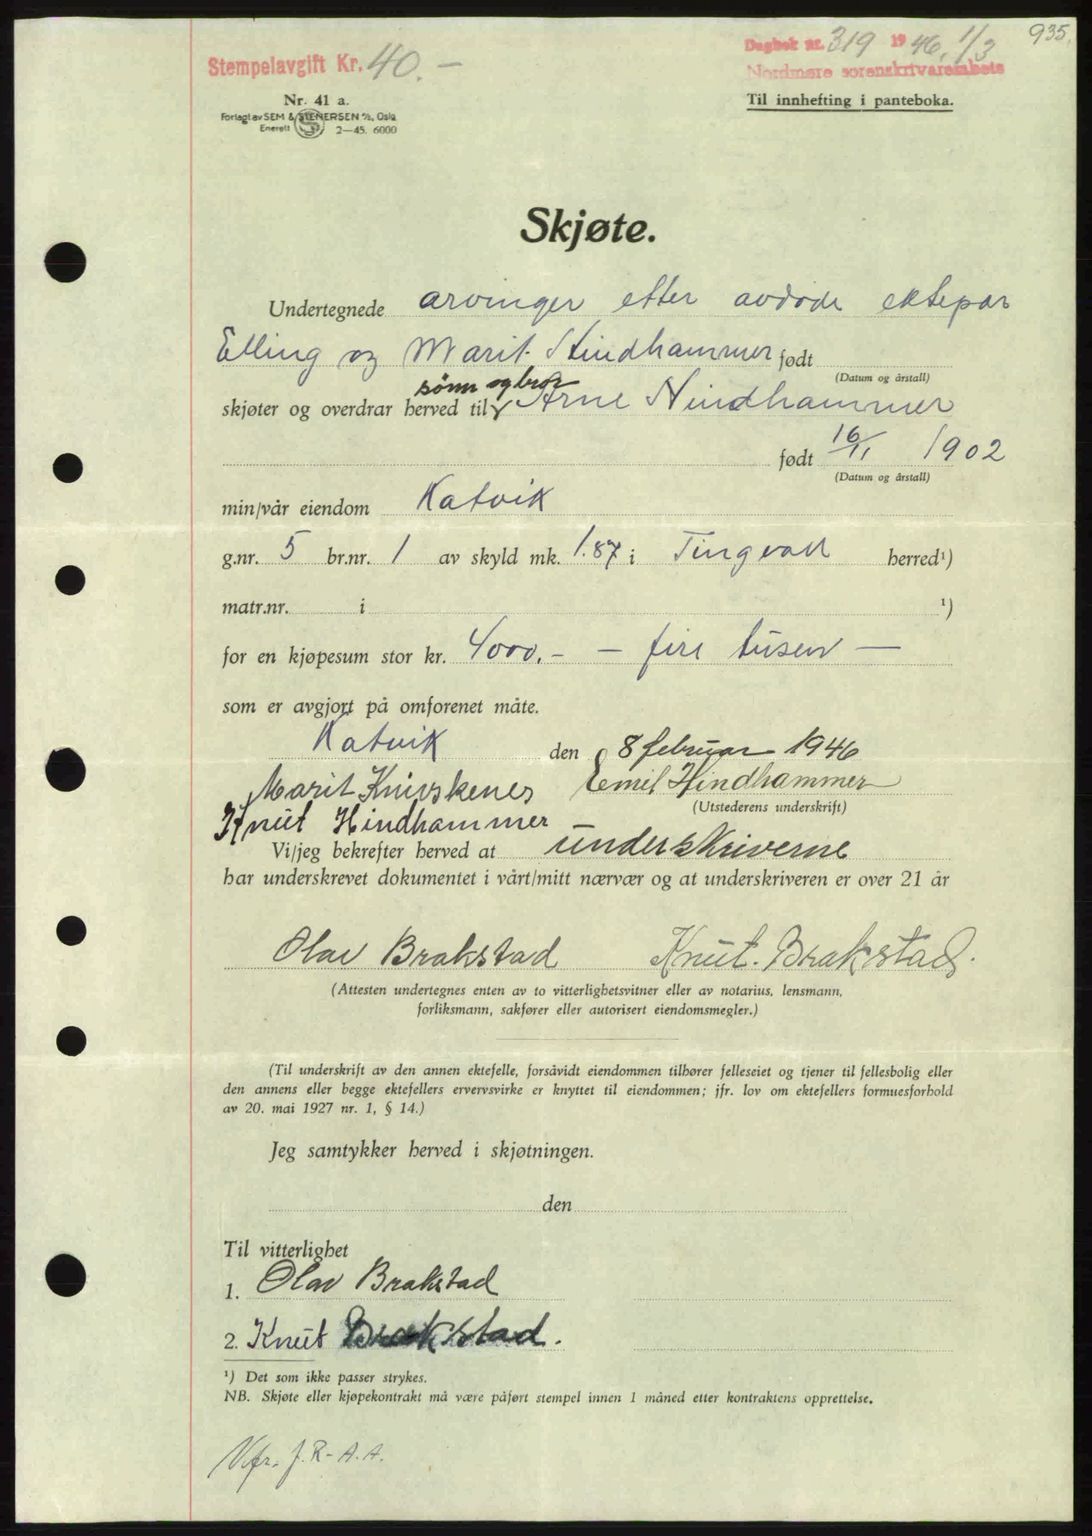 Stempelavgift Kr. 40.–
Dagbok nr. 319 1946, 1/3 935.
Nordmøre sorenskrivarembete
Nr. 41 a.
Til innhefting i panteboka.
Forlagt av SEM & STENERSEN A/S, Oslo
Enerett 2—45. 6000
Skjøte.
Undertegnede arvinger etter avdøde ektepar
Elling og Marit Hindhammer født
(Datum og årstall)
sønn og bror
skjøter og overdrar herved til Arne Hindhammer
født 16/11 1902
(Datum og årstall)
min/vår eiendom Katvik
g.nr. 5 br.nr. 1 av skyld mk. 1.87 i Tingvoll herred¹)
matr.nr. i ¹)
for en kjøpesum stor kr. 4000.– – fire tusen –
som er avgjort på omforenet måte.
Katvik den 8 februar 1946
Marit Knivskenes Emil Hindhammer
(Utstederens underskrift)
Knut Hindhammer
Vi/jeg bekrefter herved at underskriverne
har underskrevet dokumentet i vårt/mitt nærvær og at underskriveren er over 21 år
Olav Brakstad Knut. Brakstad.
(Attesten undertegnes enten av to vitterlighetsvitner eller av notarius, lensmann,
forliksmann, sakfører eller autorisert eiendomsmegler.)
(Til underskrift av den annen ektefelle, forsåvidt eiendommen tilhører felleseiet og tjener til fellesbolig eller
den annens eller begge ektefellers ervervsvirke er knyttet til eiendommen; jfr. lov om ektefellers formuesforhold
av 20. mai 1927 nr. 1, § 14.)
Jeg samtykker herved i skjøtningen.
den
Til vitterlighet
1. Olav Brakstad
2. Knut Brakstad.
¹) Det som ikke passer strykes.
NB. Skjøte eller kjøpekontrakt må være påført stempel innen 1 måned etter kontraktens opprettelse.
J.R- A.A.